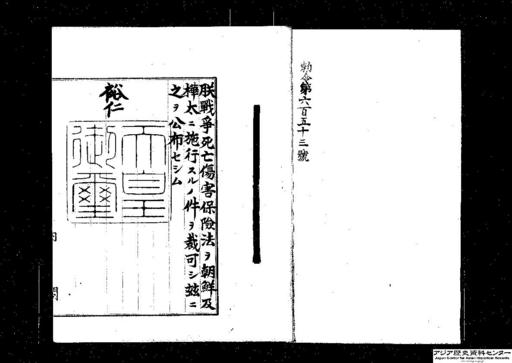 勅令第六百五十三號
朕戰爭死亡傷害保險法ヲ朝鮮及
樺太ニ施行スルノ件ヲ裁可シ玆ニ
之ヲ公布セシム
裕仁
天皇御璽
内閣
アジア歴史資料センター
Japan Center for Asian Historical Records